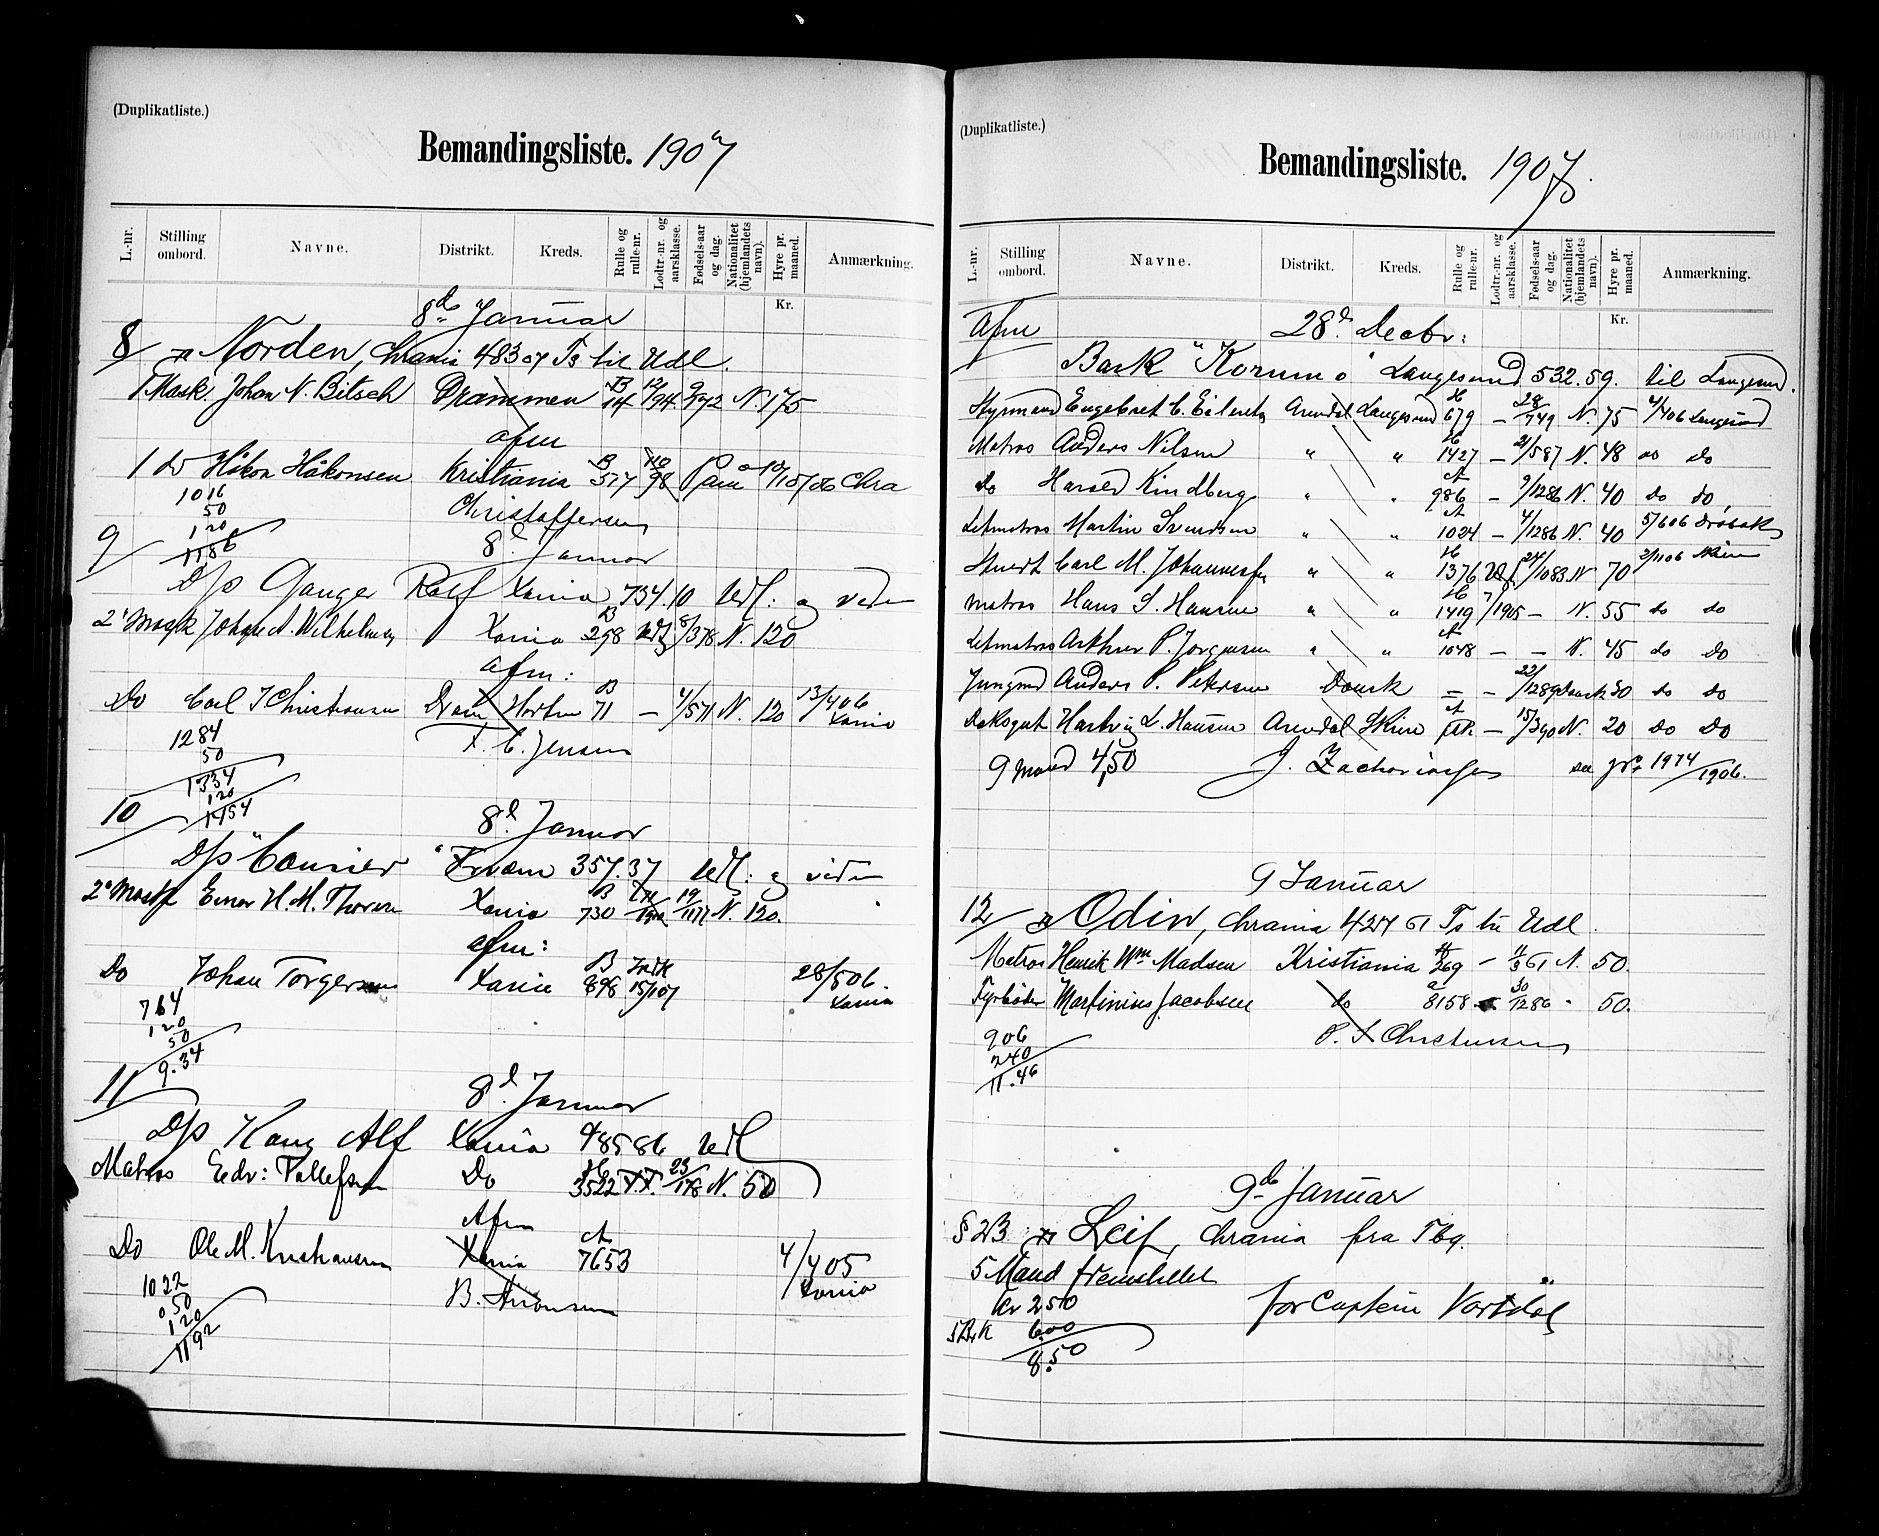 (Duplikatliste.)
Bemandingsliste. 1907
L.-nr. Stilling ombord. Navne. Distrikt. Kreds. Rulle og rulle-nr. Lodtr.-nr. og aarsklasse. Fødsels-aar og dag. Nationalitet (hjemlandets navn). Hyre pr. maaned. Anmærkning.
Kr.
8de Januar
8 Norden, Chrania 483 07 Ts til Udl.
1 Mask. Johan N. Bitsch Drammen B 14 94 N. 175
afm
1 do Håkon Håkonsen Kristiania B 98 10/10/06 Chra
10 16
50
1 20
11,86
Christoffersen
9 8d Januar
D/s Ganger Rolf Xania 734.10 Udl: og viden
2' Mask Johan A. Wilhelmsen Xania B 298 8/378 N. 120
Afm:
Do Carl J Christiansen Dram Horten B 71 – 4/571 N. 120 13/406 Xania
1284
50
1334
120
1454
F. C. Jensen
10 8d Januar
D/s "Courier" Tvedem 357.37 Udl: og viden
2' Mask Einar H. M. Thoresen Xania B 730 19/1177 N. 120.
afm:
Do Johan Torgersen Xania B 898 15/107 28/506. Xania
764
120
50
9.34
11 8d Januar
D/s Kong Alf Xania 485 86 Udl
Matros Edv: Tollefsen Do 3522 23/178 N. 50
Afm
Do Ole M. Kristiansen Xania A 7653 4/405 Xania
1022
050
120
1192
B. Aronsen
(Duplikatliste.)
Bemandingsliste. 1907.
L.-nr. Stilling ombord. Navne. Distrikt. Kreds. Rulle og rulle-nr. Lodtr.-nr. og aarsklasse. Fødsels-aar og dag. Nationalitet (hjemlandets navn). Hyre pr. maaned. Anmærkning.
Kr.
Afm 28d Decbr:
Bark "Korumo" Langesund 532.59. til Langesund.
Styrmand Engebret C. Eilertz Arendal Langesund 679 – 28/749 N. 75 4/406 Langesund
Matros Anders Nilsen " " 1427 – 21/587 N. 48 do do
Do Harald Kindberg " " A 986 – 9/1286 N. 40 do do
Letmatros Martin Svendsen " " A 1024 – 4/1286 N. 40 5/606 Drøbak
Stuert Carl M. Johannesen " " 1376 Udf 24/1083 N 70 2/1106 Skien
Matros Hans S. Hansen " " 1419 7/1905 – N. 55 do do
Letmatros Arthur P. Jørgensen " " A 1048 – – N. 45 do do
Jungmd Anders P. Petersen Dansk – – 22/1289 Dansk 30 do do
Dæksgut Hartvig L. Hansen Arendal Skien A – 15/390 N. 20 Do Do
9 Mand 4,50 J. Zachariassen se No 1974/1906.
9 Januar
12 Odin, Chrania 424 61 Ts til Udl.
Matros Henrik Wm. Madsen Kristiania 269 – 11/3 61 N. 50.
Fyrbøder Martinius Jacobsen do a 8158 30/1286 " 50.
906
240
11.46
P. A Christensen
9de Januar
§ 2B Leif, Chrania fra Tbg.
5 Mand fremstillet
Kr 2 50
6.00
8.50
for Captein Vortdal